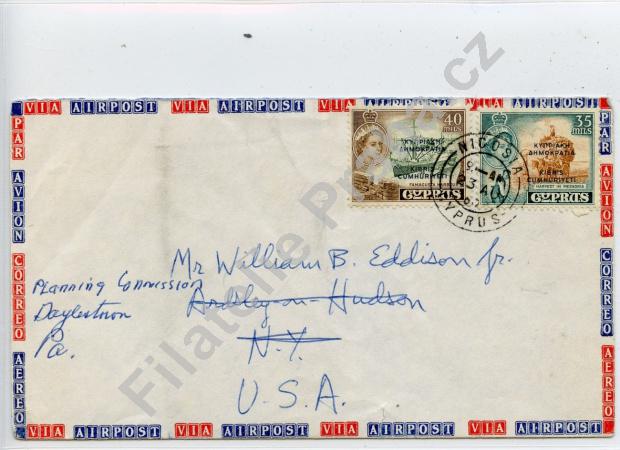 VIA AIRPOST VIA AIRPOST VIA AIRPOST VIA AIRPOST
PAR AVION CORREO AEREO
40 MILS
ΚΥΠΡΙΑΚΗ
ΔΗΜΟΚΡΑΤΙΑ
KIBRIS
CUMHURİYETİ
FAMAGUSTA HARBOUR
CYPRUS
35 MILS
ΚΥΠΡΙΑΚΗ
ΔΗΜΟΚΡΑΤΙΑ
KIBRIS
CUMHURİYETİ
HARVEST IN MESAORIA
CYPRUS
NICOSIA
9 - AM
23 AU
CYPRUS
Mr William B. Eddison Jr.
Ardsley-on-Hudson
N.Y.
U.S.A.
Planning Commission
Doylestown
Pa.
PAR AVION CORREO AEREO
VIA AIRPOST VIA AIRPOST VIA AIRPOST VIA AIRPOST
Filatelie Pr cz